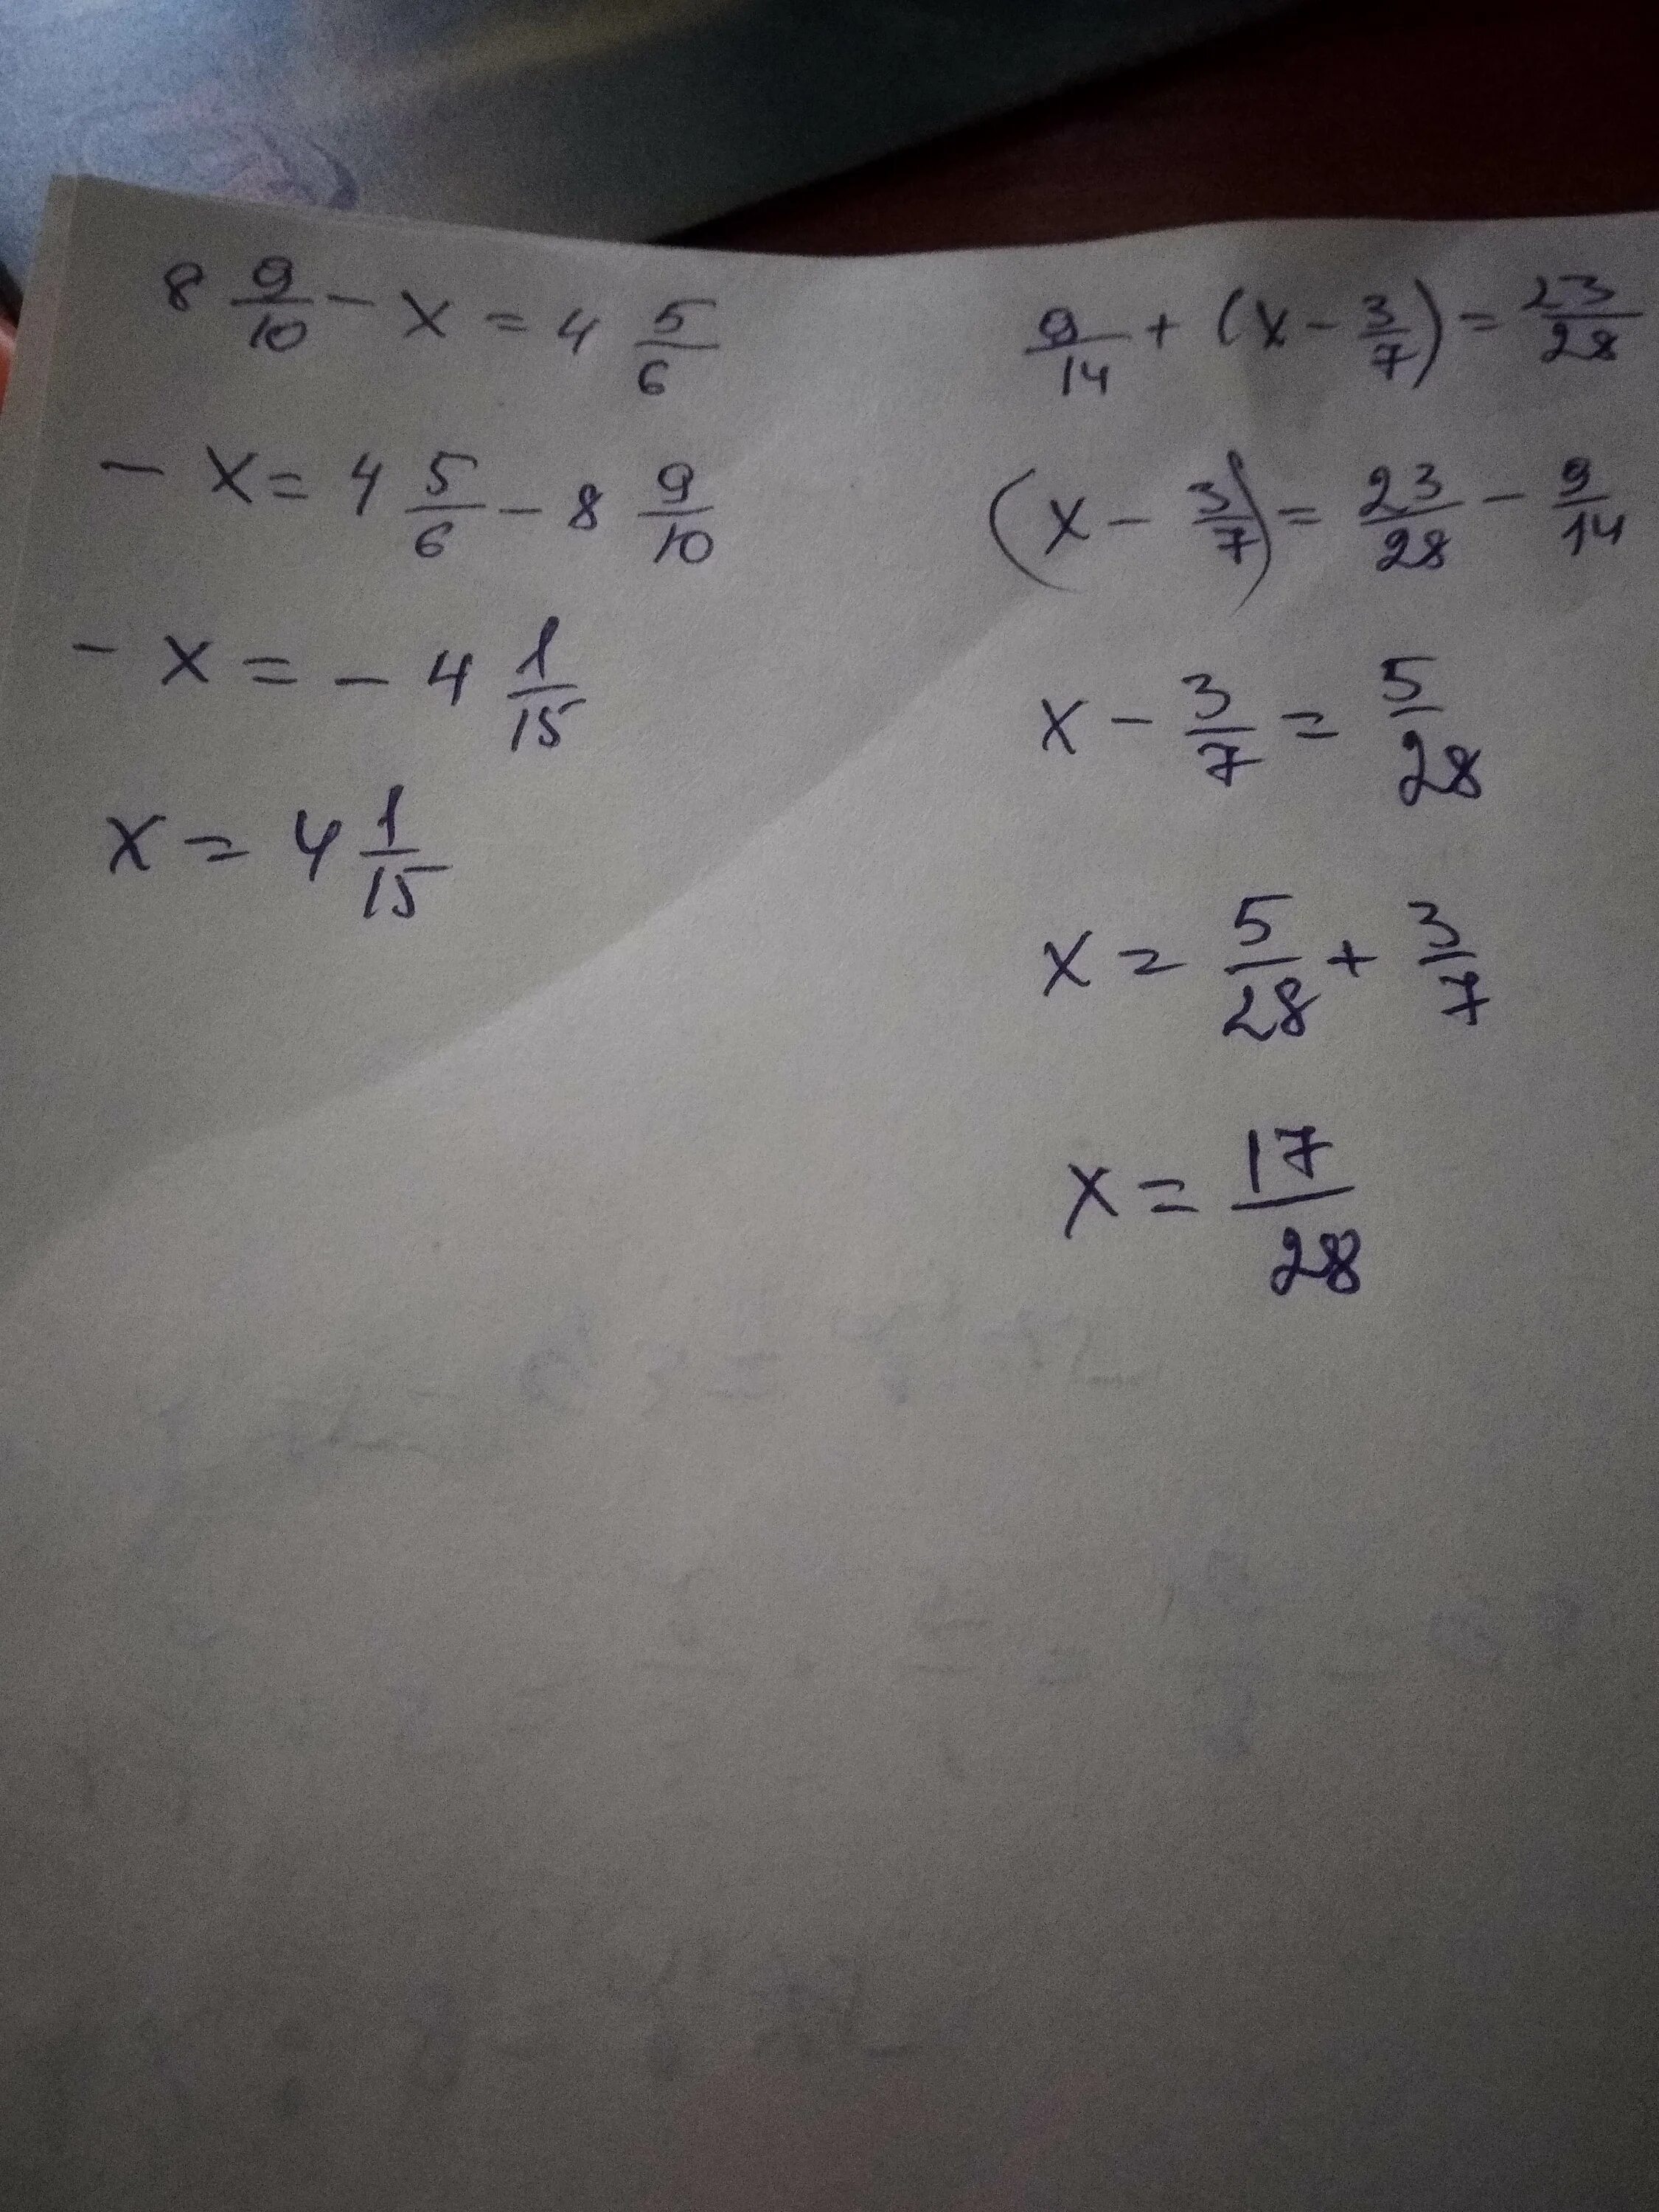 8 9/10 - x = 4 5/6
- x = 4 5/6 - 8 9/10
- x = - 4 1/15
x = 4 1/15
9/14 + (x - 3/7) = 23/28
(x - 3/7) = 23/28 - 9/14
x - 3/7 = 5/28
x = 5/28 + 3/7
x = 17/28